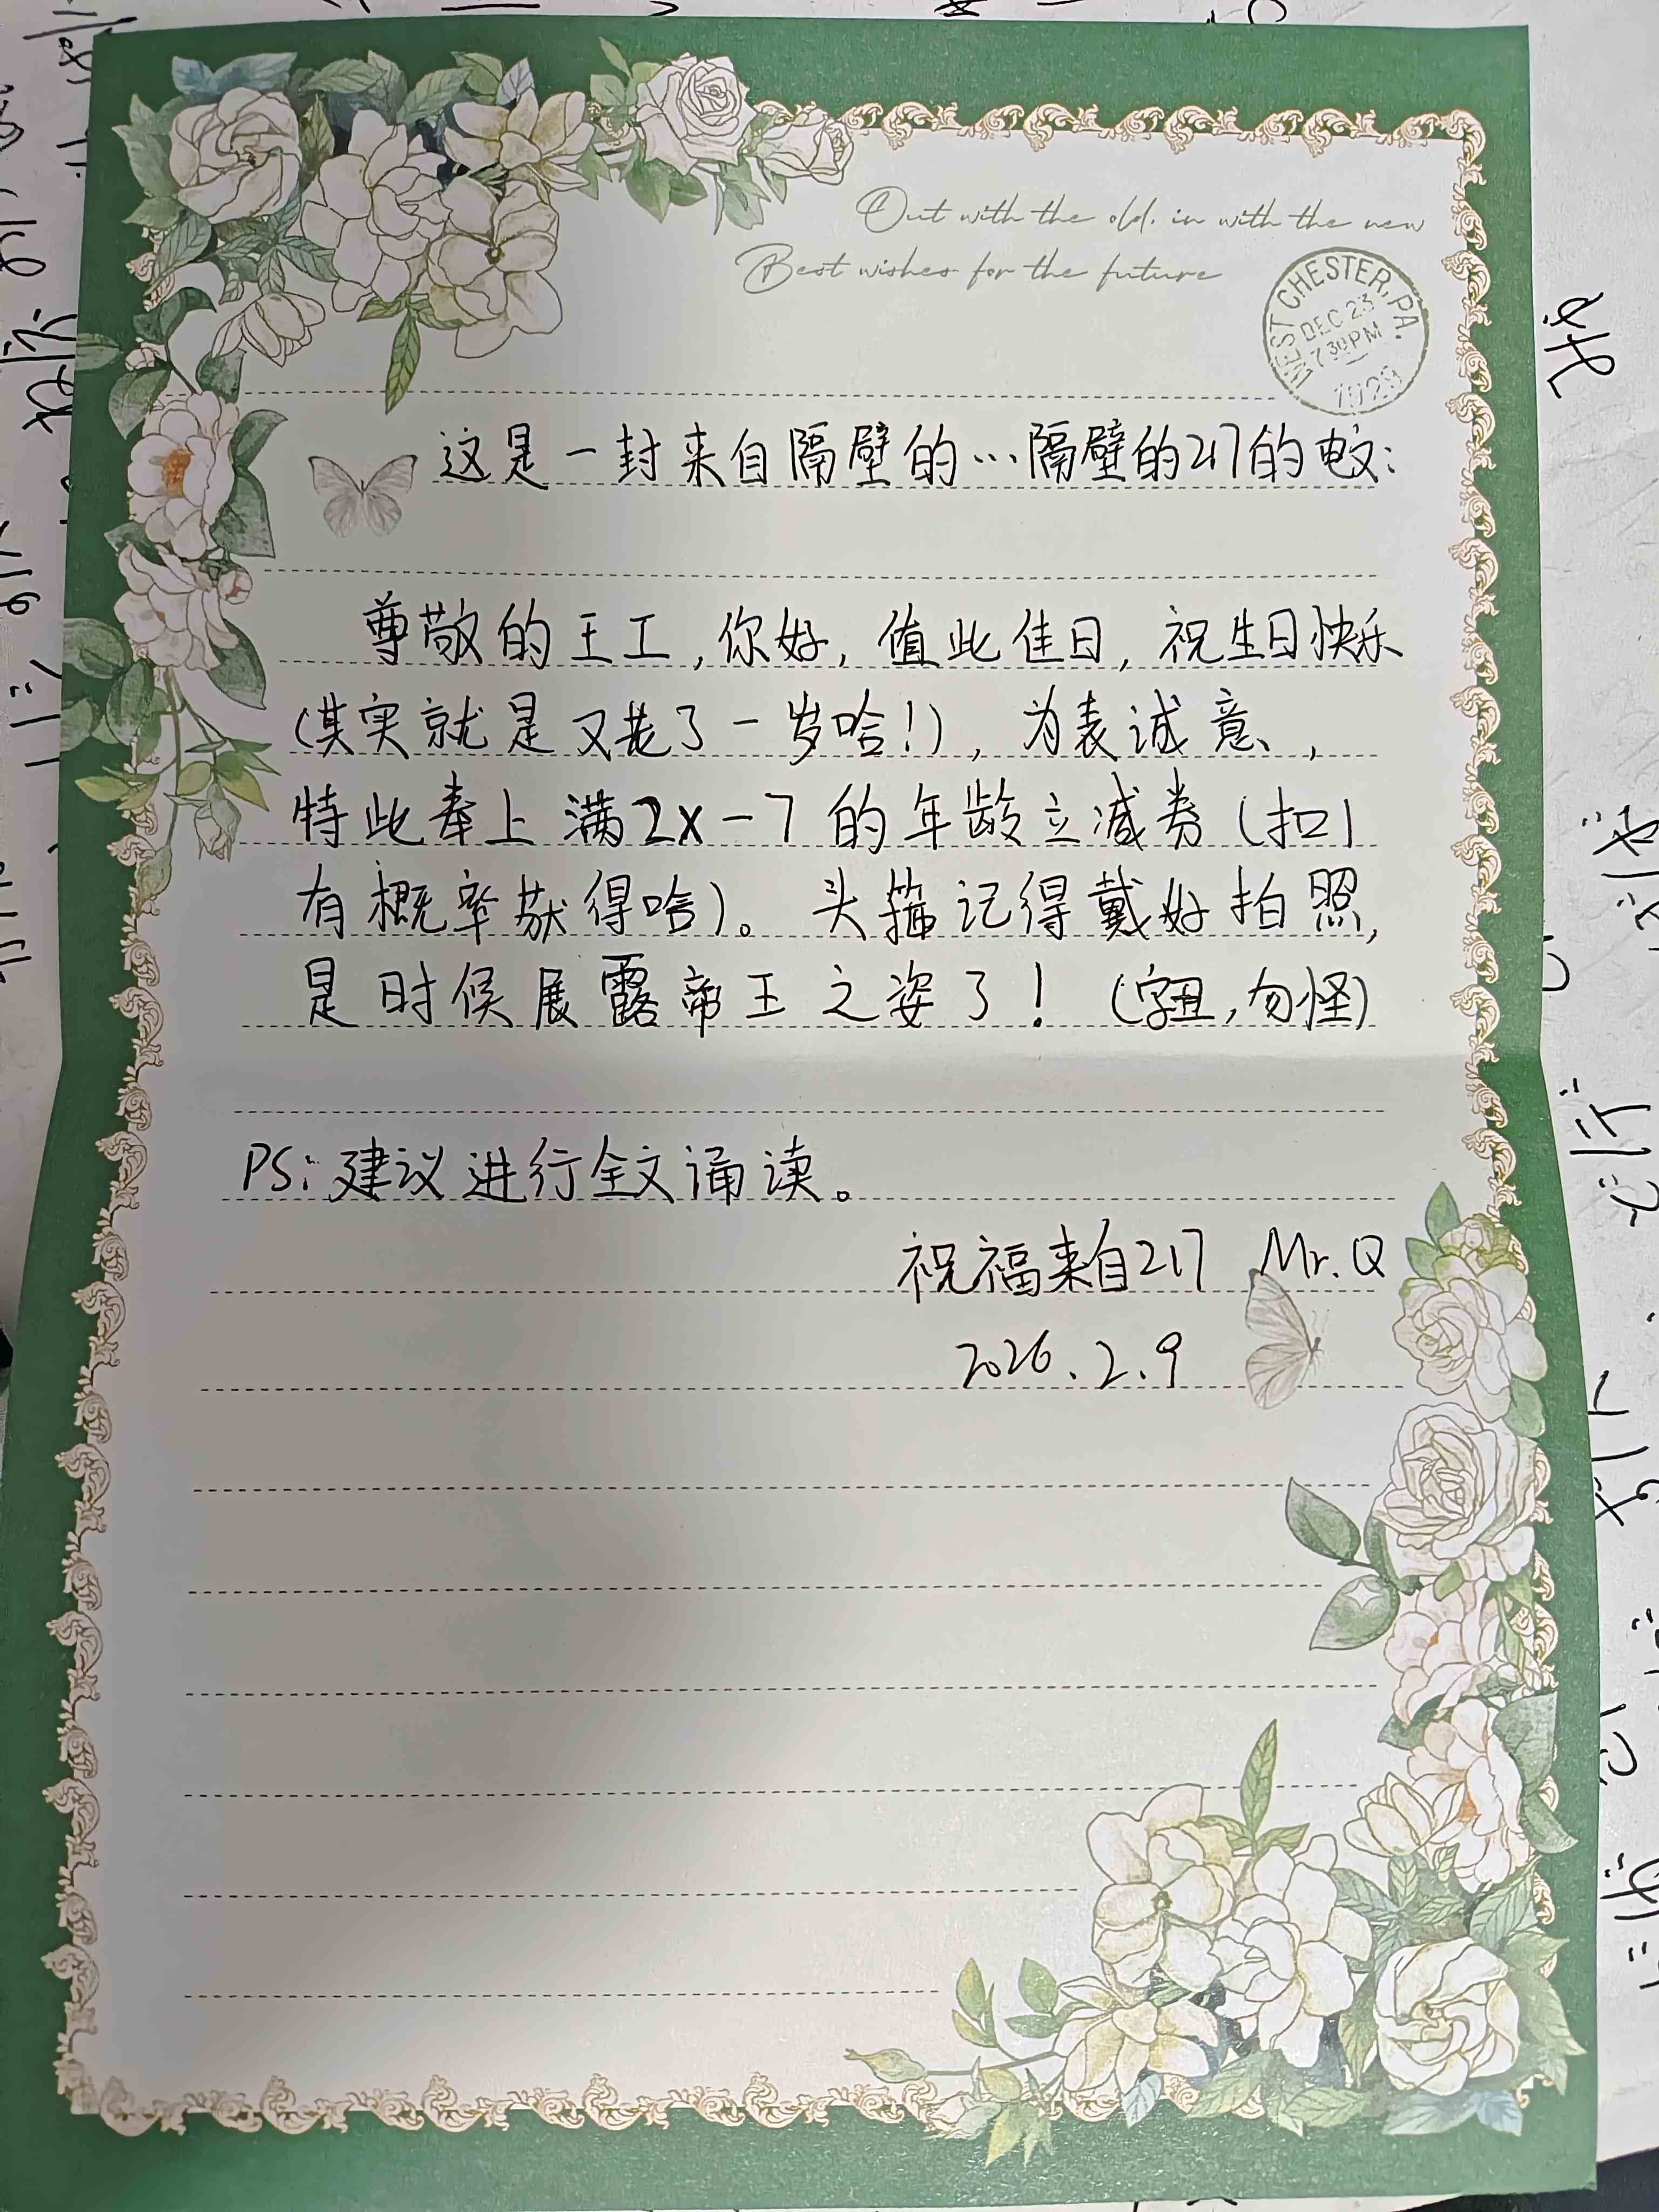 Out with the old, in with the new
Best wishes for the future
WEST CHESTER, PA.
DEC 23
7 30 PM
这是一封来自隔壁的…隔壁的217的电文:
尊敬的王工,你好,值此佳日,祝生日快乐
(其实就是又老了一岁哈!),为表诚意,
特此奉上满2x-7的年龄立减券(扣1
有概率获得哈)。头箍记得戴好拍照,
是时候展露帝王之姿了!(字丑,勿怪)
PS:建议进行全文诵读。
祝福来自217 Mr.Q
2026.2.9